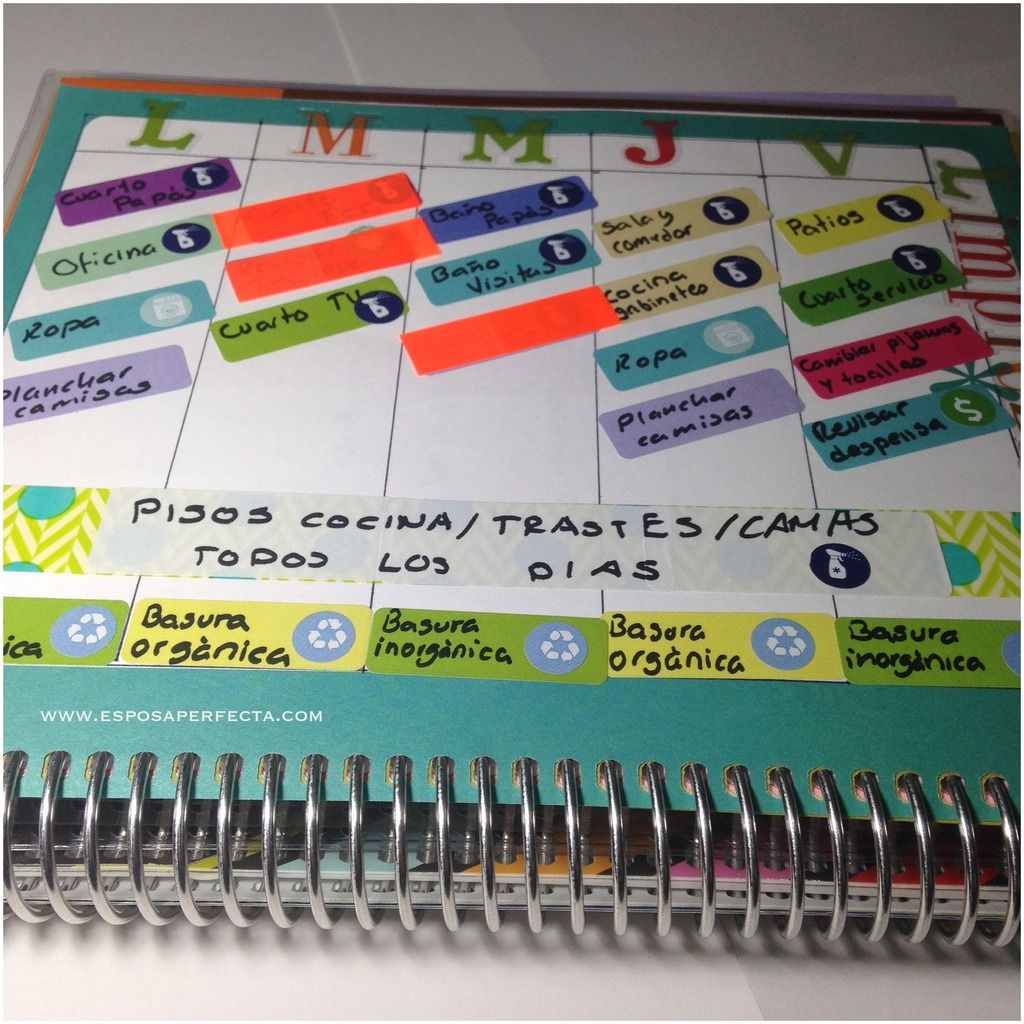 L M M J V
Cuarto
Papás
Oficina
Ropa
Planchar
camisas
Cuarto TV
Baño
Papás
Baño
Visitas
Sala y
comedor
Cocina
gabinetes
Ropa
Planchar
camisas
Patios
Cuarto
Servicio
Cambiar pijamas
y toallas
Revisar
despensa
$
PISOS COCINA/TRASTES/CAMAS
TODOS LOS DIAS
ica
Basura
orgànica
Basura
inorgànica
Basura
orgànica
Basura
inorgànica
WWW.ESPOSAPERFECTA.COM